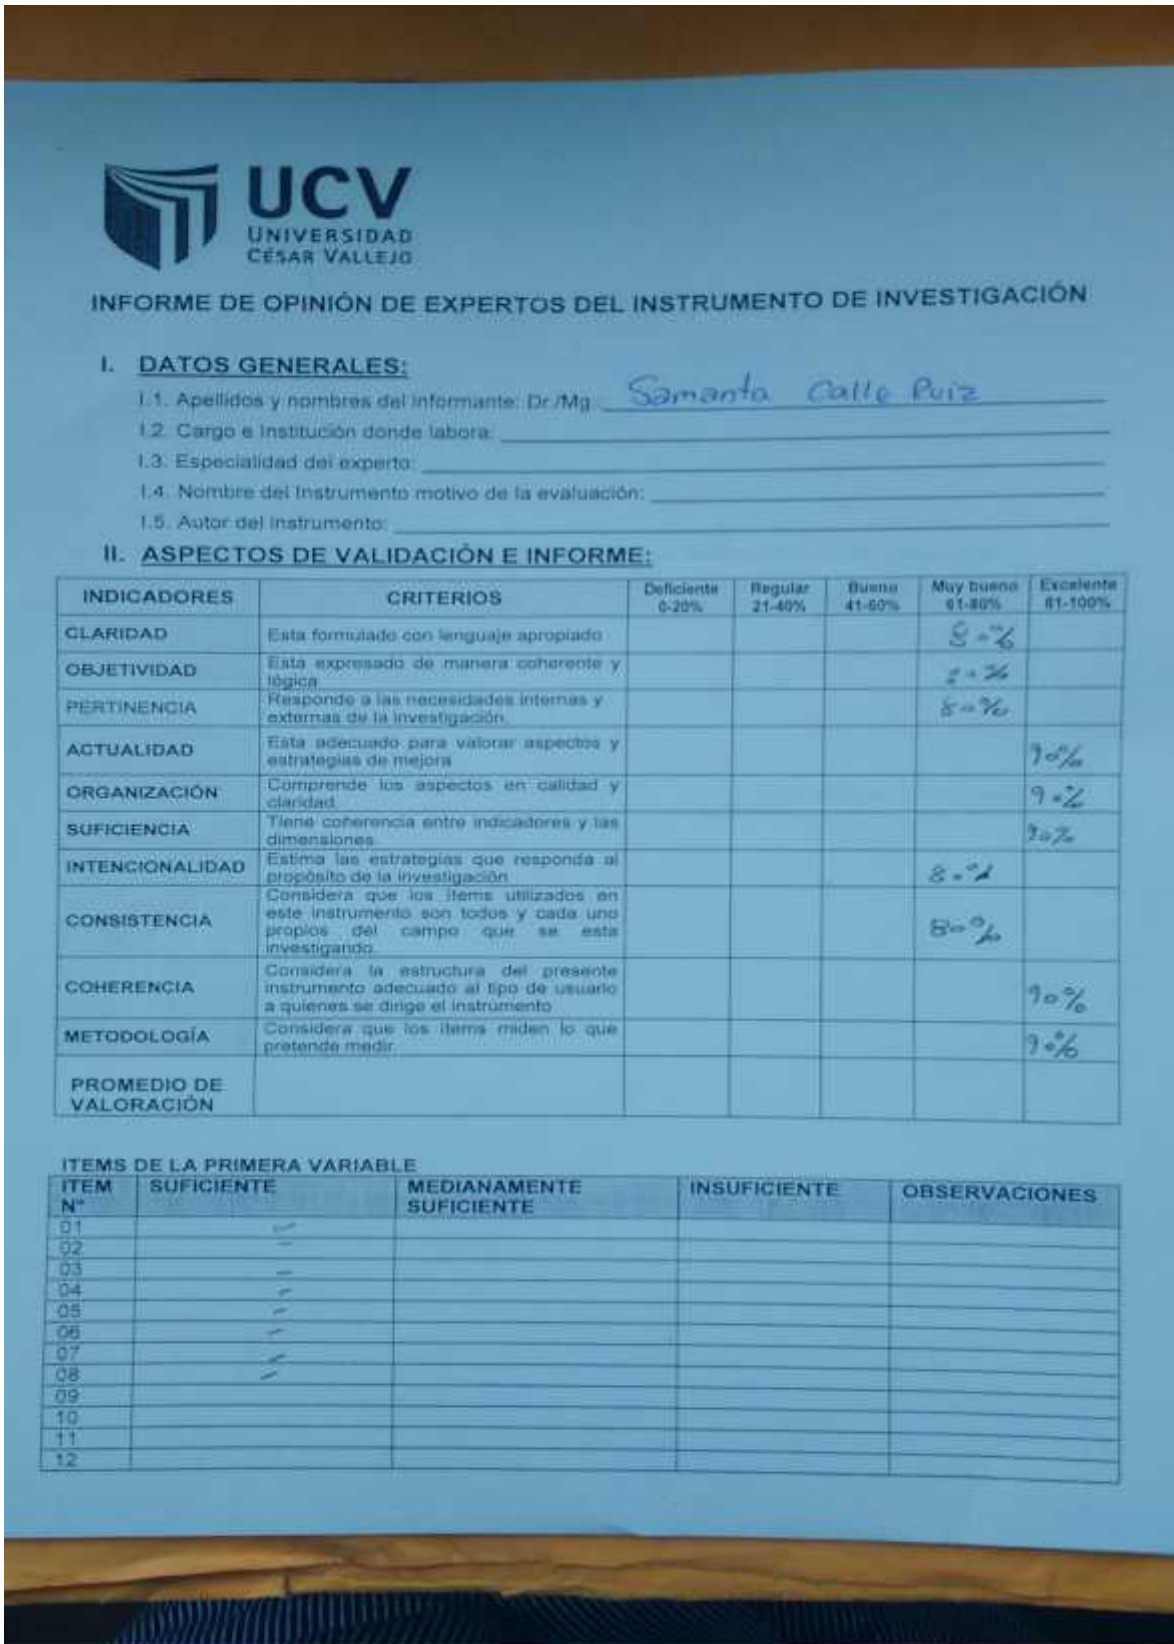 UCV
UNIVERSIDAD
CÉSAR VALLEJO
INFORME DE OPINIÓN DE EXPERTOS DEL INSTRUMENTO DE INVESTIGACIÓN
I. DATOS GENERALES:
I.1. Apellidos y nombres del informante: Dr./Mg.: Samanta Calle Ruiz
I.2. Cargo e Institución donde labora:
I.3. Especialidad del experto:
I.4. Nombre del Instrumento motivo de la evaluación:
I.5. Autor del instrumento:
II. ASPECTOS DE VALIDACIÓN E INFORME:
INDICADORES CRITERIOS Deficiente 0-20% Regular 21-40% Bueno 41-60% Muy bueno 61-80% Excelente 81-100%
CLARIDAD Esta formulado con lenguaje apropiado 80%
OBJETIVIDAD Esta expresado de manera coherente y
lógica 80%
PERTINENCIA Responde a las necesidades internas y
externas de la investigación. 80%
ACTUALIDAD Esta adecuado para valorar aspectos y
estrategias de mejora 90%
ORGANIZACIÓN Comprende los aspectos en calidad y
claridad. 90%
SUFICIENCIA Tiene coherencia entre indicadores y las
dimensiones. 90%
INTENCIONALIDAD Estima las estrategias que responda al
propósito de la investigación 80%
CONSISTENCIA Considera que los items utilizados en
este instrumento son todos y cada uno
propios del campo que se esta
investigando. 80%
COHERENCIA Considera la estructura del presente
instrumento adecuado al tipo de usuario
a quienes se dirige el instrumento 90%
METODOLOGÍA Considera que los items miden lo que
pretende medir. 90%
PROMEDIO DE
VALORACIÓN
ITEMS DE LA PRIMERA VARIABLE
ITEM N° SUFICIENTE MEDIANAMENTE SUFICIENTE INSUFICIENTE OBSERVACIONES
01
02
03
04
05
06
07
08
09
10
11
12